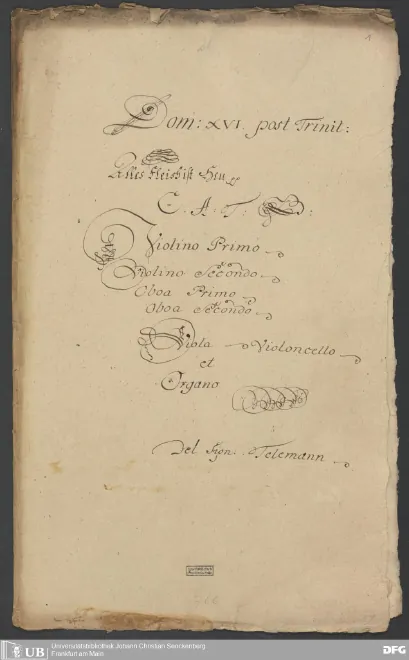 1
Dom: XVI. post Trinit:
Alles Fleisch ist Heu
C. A. T. :
Violino Primo
Violino Secondo
Oboa Primo
Oboa Secondo
Viola Violoncello
et
Organo
Del Sign. Telemann
UB
Universitätsbibliothek Johann Christian Senckenberg
Frankfurt am Main
DFG